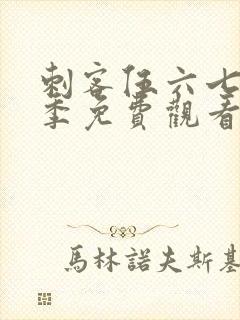 刺客伍六七
季免費觀看
馬林諾夫斯基